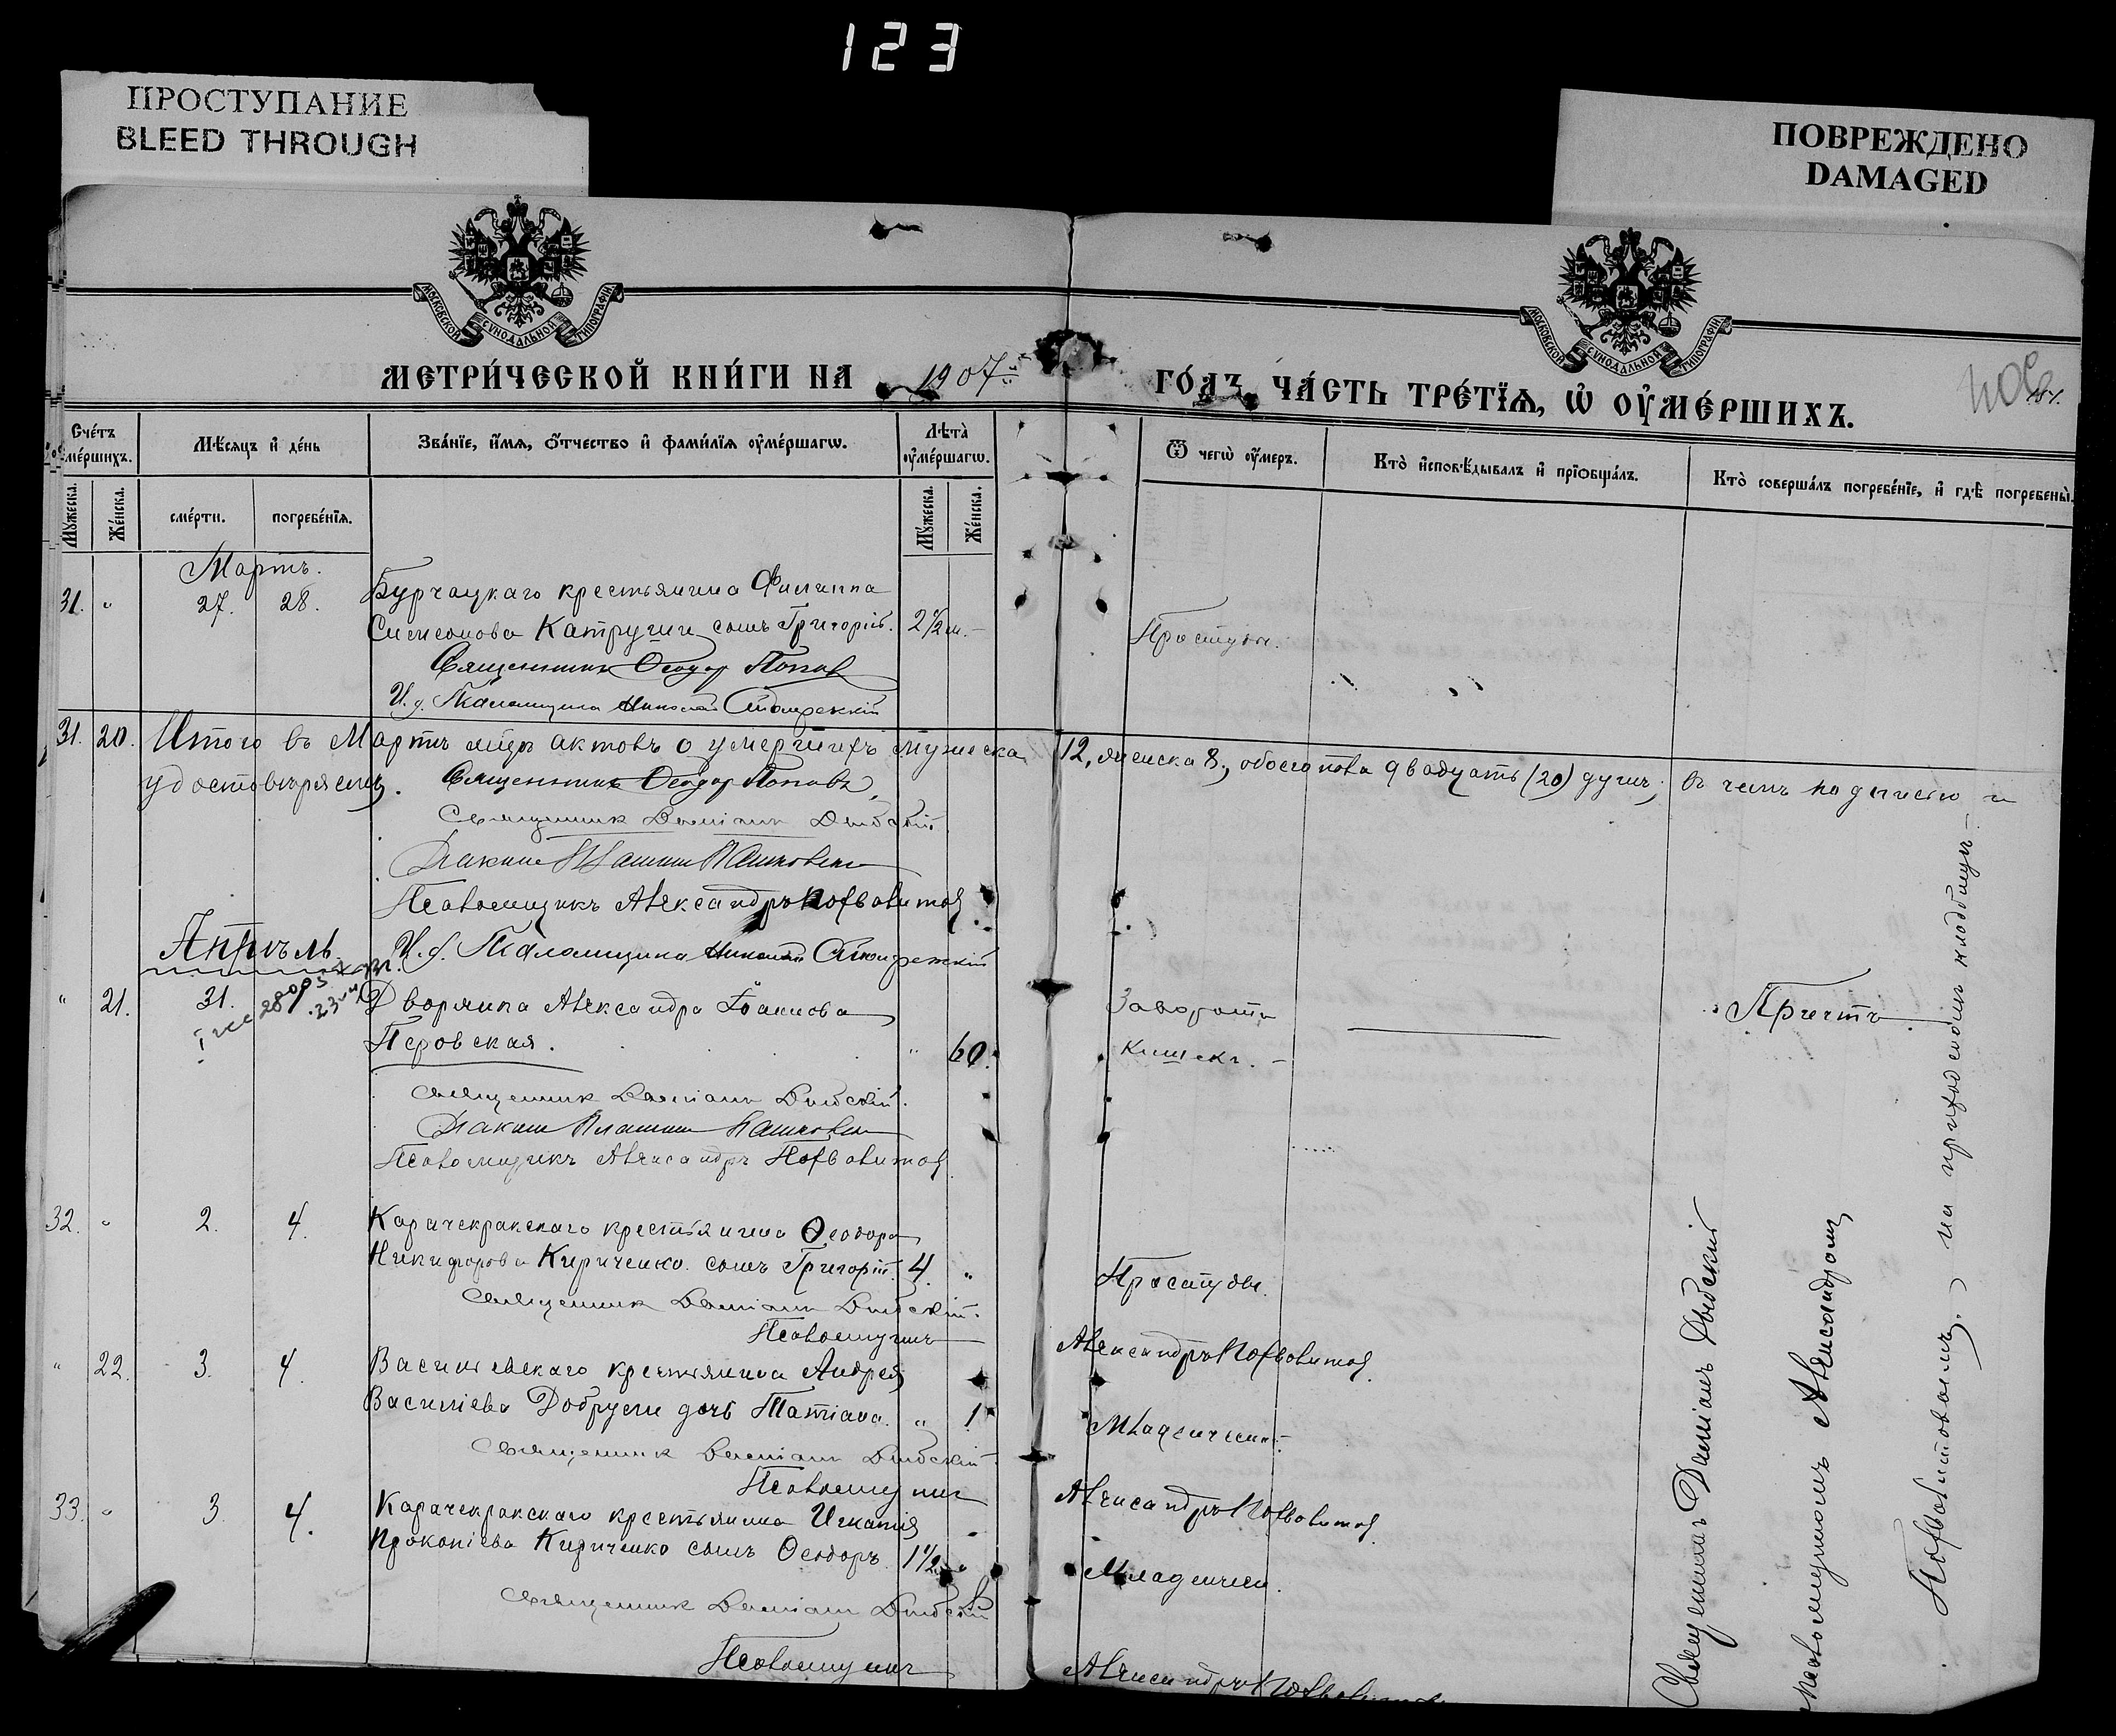 123
ПРОСТУПАНИЕ
BLEED THROUGH
ПОВРЕЖДЕНО
DAMAGED
МОСКОВСКОЙ СѴНОДАЛЬНОЙ ТИПОГРАФІИ
МОСКОВСКОЙ СѴНОДАЛЬНОЙ ТИПОГРАФІИ
МЕТРИ́ЧЕСКОЙ КНИ́ГИ НА 1907 ГО́ДЪ, ЧА́СТЬ ТРЕ́ТЇѦ, Ѡ҆ ОУ҆МЕ́РШИХЪ.
Счéтъ ᲂу҆мéршихъ.
Мѣ́сяцъ и҆ дéнь
Звáнїе, и҆́мѧ, ѻ҆́тчество и҆ фами́лїѧ ᲂу҆мéршагѡ.
Лѣ̑та̀ ᲂу҆мéршагѡ.
Ѿ чегѡ̀ ᲂу҆́меръ.
Ктò и҆сповѣ́дывалъ и҆ прїѡбщáлъ.
Ктò совершáлъ погребéнїе, и҆ гдѣ̀ погребены̀.
Мꙋ́жеска.
Жéнска.
смéрти.
погребéнїѧ.
Мꙋ́жеска.
Жéнска.
Мартъ.
31. " 27. 28. Бурчацкаго крестьянина Филиппа
Симеонова Катругии сынъ Григорій. 2½ м. – Простуды.
Священникъ Ѳеодор Попов
И. д. Псаломщика Николай
31. 20. Итого въ Мартѣ мцѣ актовъ о умершихъ мужеска 12, женска 8, обоего пола двадцать (20) душъ, въ чемъ подписью и
удостовѣряемъ. Священникъ Ѳеодоръ Поповъ
Священникъ Даміанъ Дыбскій
Діаконъ
Псаломщикъ Александръ
Апрѣль.
И. д. Псаломщика Николай
" 21. 31. Дворянка Александра Іоанова
Перовская. " 60. Заворотъ
кишекъ. – Причтъ
Священникъ Даміанъ Дыбскій.
Діаконъ
Псаломщикъ Александръ
32. " 2. 4. Карачекракскаго крестьянина Ѳеодора
Никифорова Кириченко сынъ Григорій. 4. " Простуды.
Священникъ Даміанъ Дыбскій.
Псаломщикъ Александръ
" 22. 3. 4. Васильевскаго крестьянина Андрея
Василіева Добруси дочь Татіана. " 1. Младенческ.
Священникъ Даміанъ Дыбскій.
Псаломщикъ Александръ
33. " 3. 4. Карачекракскаго крестьянина Игнатія
Прокопіева Кириченко сынъ Ѳеодоръ. 1½ " Младенческ.
Священникъ Даміанъ Дыбскій
Псаломщикъ Александръ
Священникъ Даміанъ Дыбскій
псаломщикомъ Александромъ
на приходскомъ кладбищѣ –